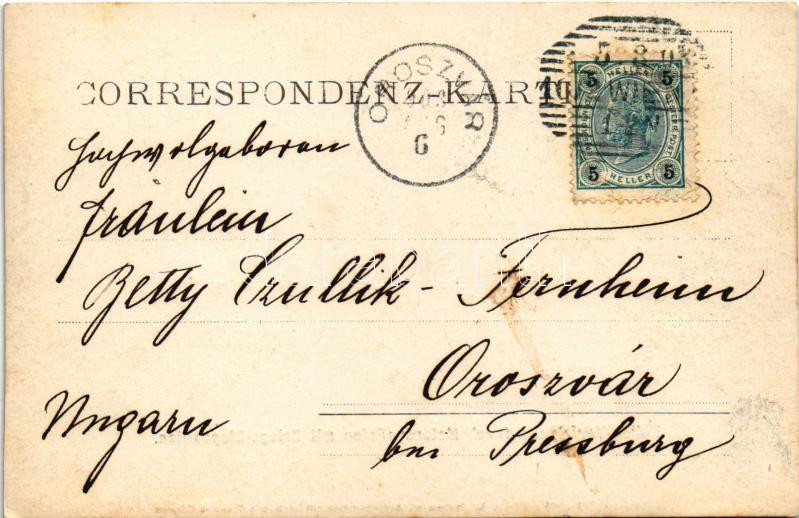 CORRESPONDENZ-KARTE
OROSZVÁR
6
WIEN
5 HELLER 5
5 HELLER 5
Hochwolgeboren
Fräulein
Betty Czullik-Fernheim
Oroszvár
Ungarn
bei Pressburg